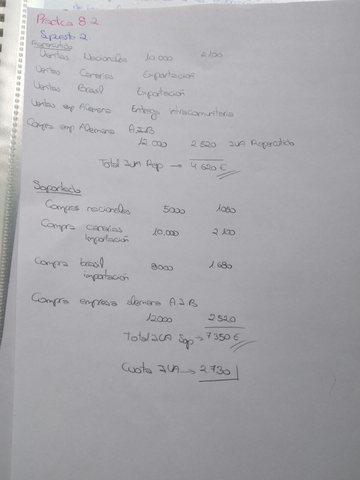 Práctica 8.2
Supuesto 2
Repercutido
Ventas Nacionales 10.000 2.100
Ventas Canarias Exportacion
Ventas Brasil Exportación
Ventas emp Alemana Entrega intracomunitaria
Compra emp Alemana A.I.B
12.000 2.520 IVA Repercutido
Total IVA Rep → 4.620 €
Soportado
Compras nacionales 5000 1050
Compra canarias 10.000 2.100
importación
Compra brasil 8000 1.680
importación
Compra empresa alemana A.I.B
12000 2520
Total IVA Sop → 7350 €
Cuota IVA → 2.730